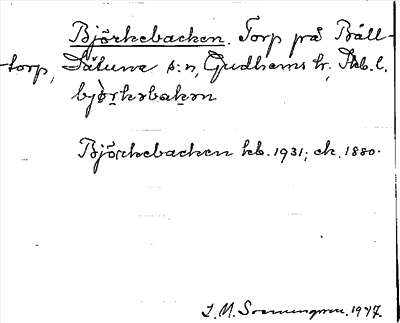 Björkebacken. Torp på Bäll-
torp, Dålum s:n, Gudhems hr, Skb. l.
bjørkəbakən
Björkebacken kb. 1931; ek. 1880.
I. M. 1947.